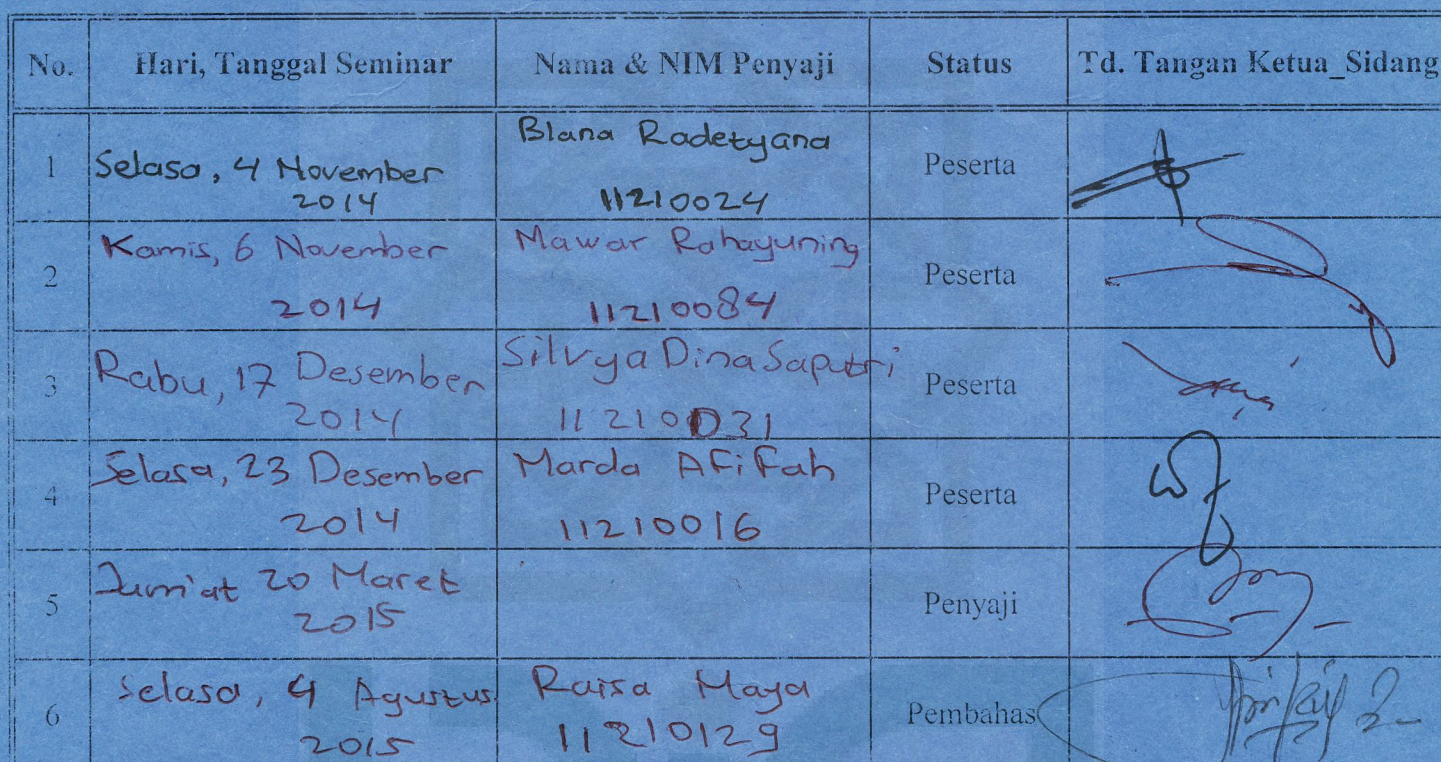 No. Hari, Tanggal Seminar Nama & NIM Penyaji Status Td. Tangan Ketua_Sidang
1 Selasa, 4 November 2014 Blana Radetyana 11210024 Peserta
2 Kamis, 6 November 2014 Mawar Rahayuning 11210084 Peserta
3 Rabu, 17 Desember 2014 Silvya Dina Saputri 11210031 Peserta
4 Selasa, 23 Desember 2014 Marda Afifah 11210016 Peserta
5 Jum'at 20 Maret 2015 Penyaji
6 Selasa, 4 Agustus 2015 Raisa Maya 11210129 Pembahas